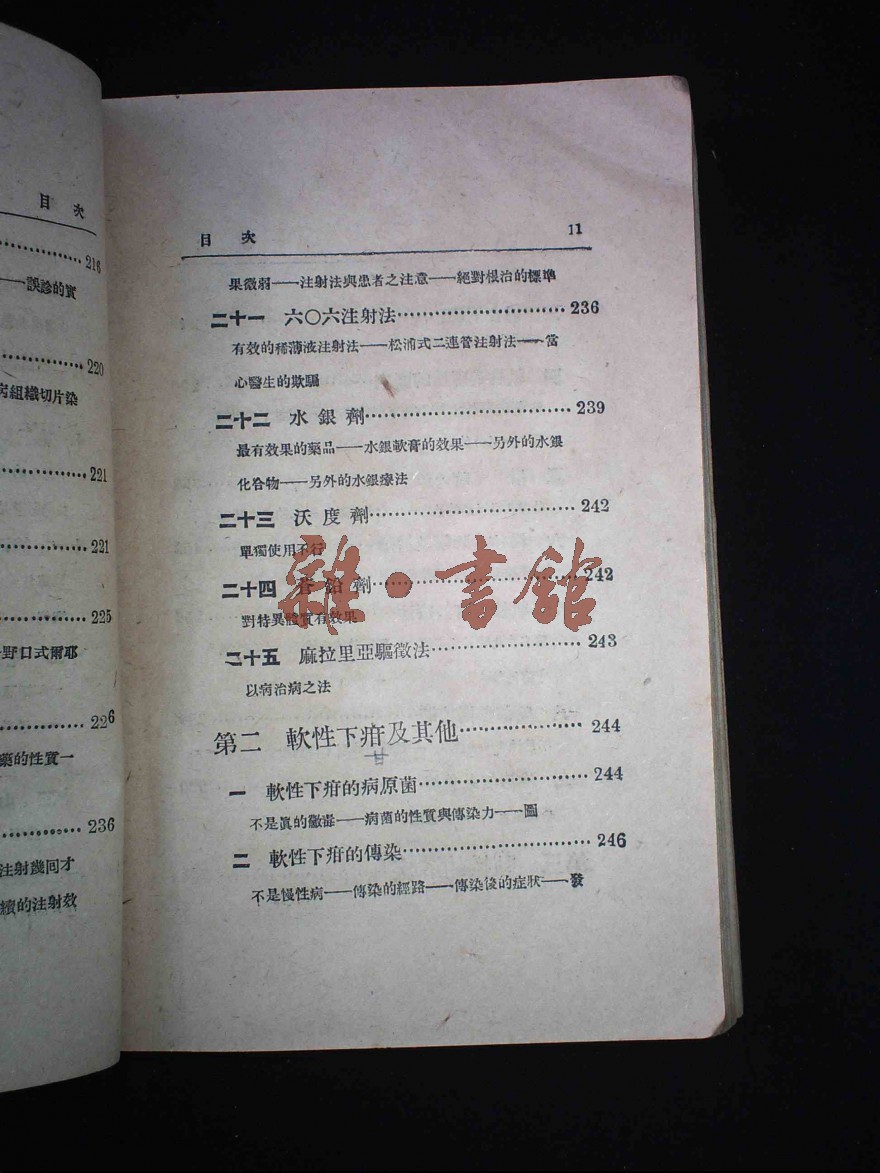 目 次
216
誤診的實
220
病組織切片染
221
221
225
野口式爾耶
226
藥的性質一
236
注射幾囘才
續的注射效
目 次 11
果微弱——注射法與患者之注意——絕對根治的標準
二十一 六〇六注射法……………………236
有效的稀薄液注射法——松浦式二連管注射法——當
心醫生的欺騙
二十二 水銀劑……………………239
最有效果的藥品——水銀軟膏的效果——另外的水銀
化合物——另外的水銀療法
二十三 沃度劑……………………242
單獨使用不行
二十四 蒼鉛劑……………………242
對特異體質有效果
二十五 麻拉里亞驅黴法……………………243
以病治病之法
第二 軟性下疳及其他……………………244
甘
一 軟性下疳的病原菌……………………244
不是眞的黴毒——病菌的性質與傳染力——圖
二 軟性下疳的傳染……………………246
不是慢性病——傳染的經路——傳染後的症狀——發
雜·書館